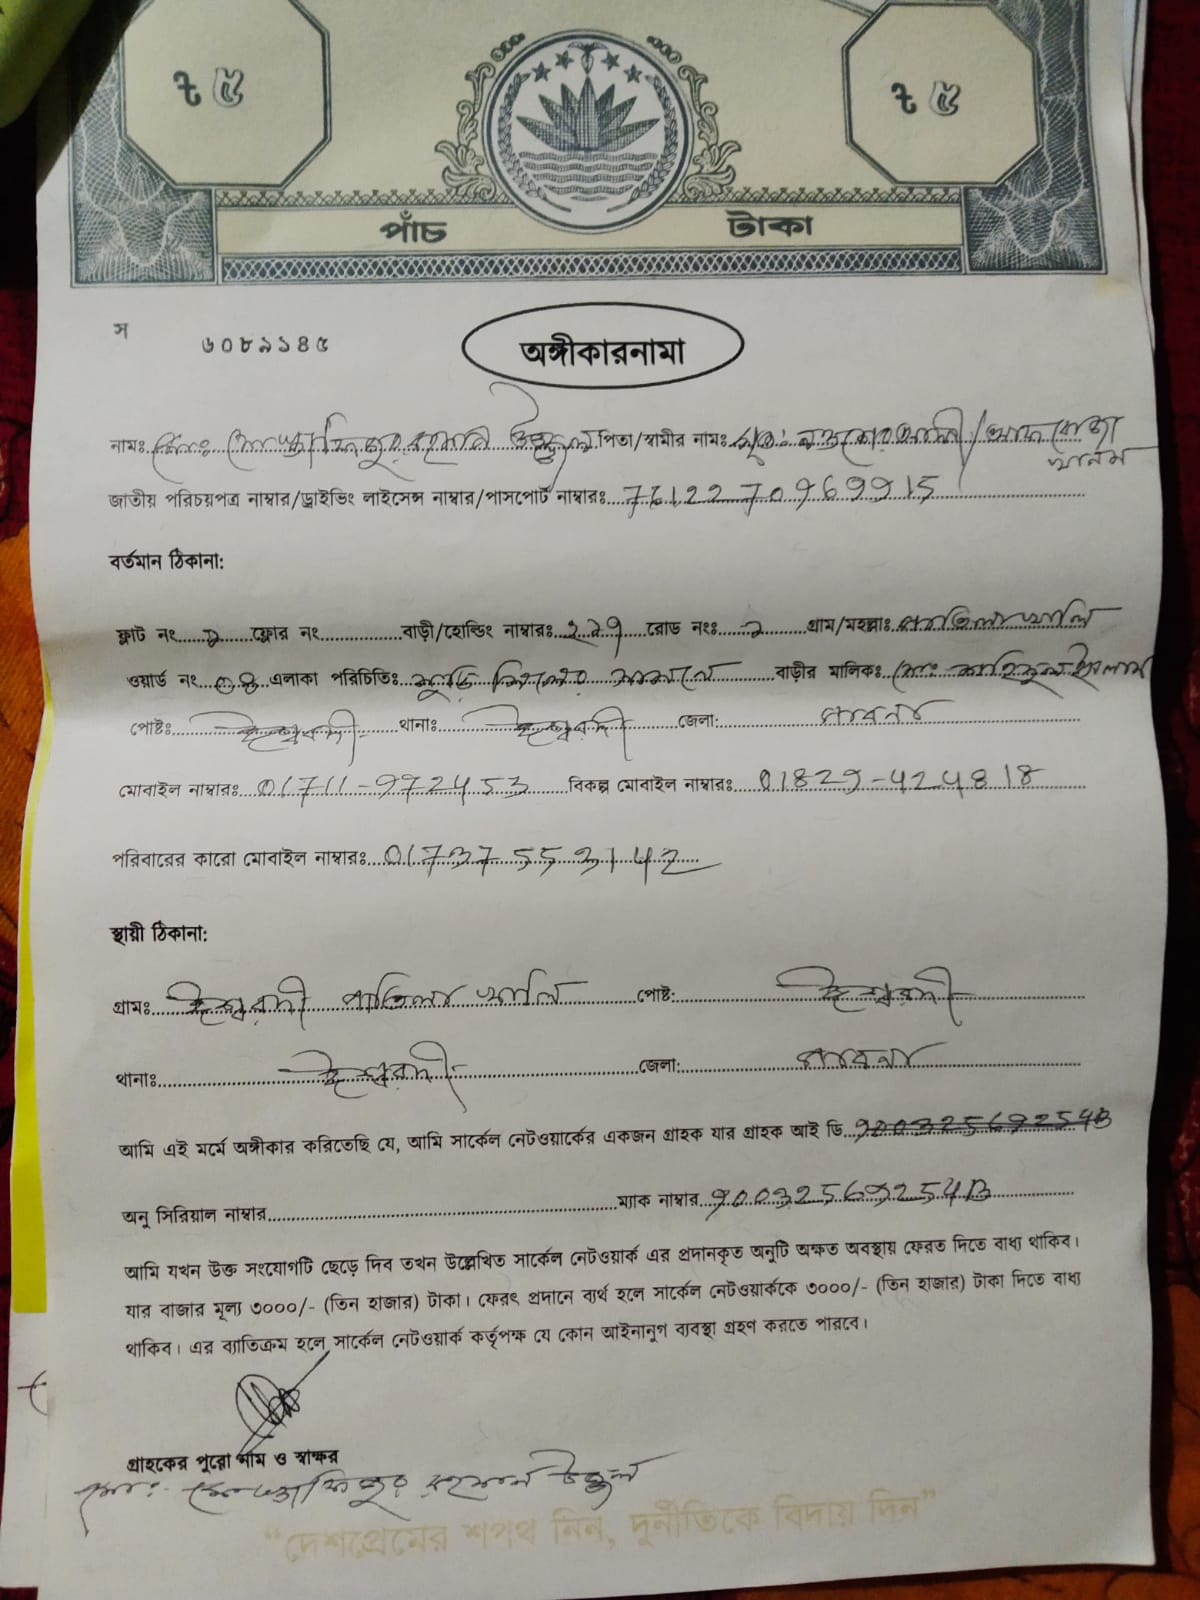 ৳ ৫
৳ ৫
পাঁচ টাকা
স
৬০৮৯১৪৫
অঙ্গীকারনামা
নামঃ মোঃ মোস্তাফিজুর রহমান উজ্জ্বল পিতা/স্বামীর নামঃ মৃতঃ
খানম
জাতীয় পরিচয়পত্র নাম্বার/ড্রাইভিং লাইসেন্স নাম্বার/পাসপোর্ট নাম্বারঃ
বর্তমান ঠিকানা:
ফ্লাট নং ফ্লোর নং বাড়ী/হোল্ডিং নাম্বারঃ রোড নংঃ গ্রাম/মহল্লাঃ পাতিলাখালি
ওয়ার্ড নং এলাকা পরিচিতিঃ বাড়ীর মালিকঃ মোঃ ইসলাম
পোষ্টঃ ঈশ্বরদী থানাঃ ঈশ্বরদী জেলা: পাবনা
মোবাইল নাম্বারঃ 01711-972453 বিকল্প মোবাইল নাম্বারঃ 01829-424818
পরিবারের কারো মোবাইল নাম্বারঃ 01737553142
স্থায়ী ঠিকানা:
গ্রামঃ ঈশ্বরদী পাতিলা খালি পোষ্ট: ঈশ্বরদী
থানাঃ ঈশ্বরদী জেলা: পাবনা
আমি এই মর্মে অঙ্গীকার করিতেছি যে, আমি সার্কেল নেটওয়ার্কের একজন গ্রাহক যার গ্রাহক আই ডি
অনু সিরিয়াল নাম্বার ম্যাক নাম্বার 90032569254B
আমি যখন উক্ত সংযোগটি ছেড়ে দিব তখন উল্লেখিত সার্কেল নেটওয়ার্ক এর প্রদানকৃত অনুটি অক্ষত অবস্থায় ফেরত দিতে বাধ্য থাকিব।
যার বাজার মূল্য ৩০০০/- (তিন হাজার) টাকা। ফেরৎ প্রদানে ব্যর্থ হলে সার্কেল নেটওয়ার্ককে ৩০০০/- (তিন হাজার) টাকা দিতে বাধ্য
থাকিব। এর ব্যতিক্রম হলে সার্কেল নেটওয়ার্ক কর্তৃপক্ষ যে কোন আইনানুগ ব্যবস্থা গ্রহণ করতে পারবে।
গ্রাহকের পুরো নাম ও স্বাক্ষর
মোঃ মোস্তাফিজুর রহমান উজ্জ্বল
“দেশপ্রেমের শপথ নিন, দুর্নীতিকে বিদায় দিন”